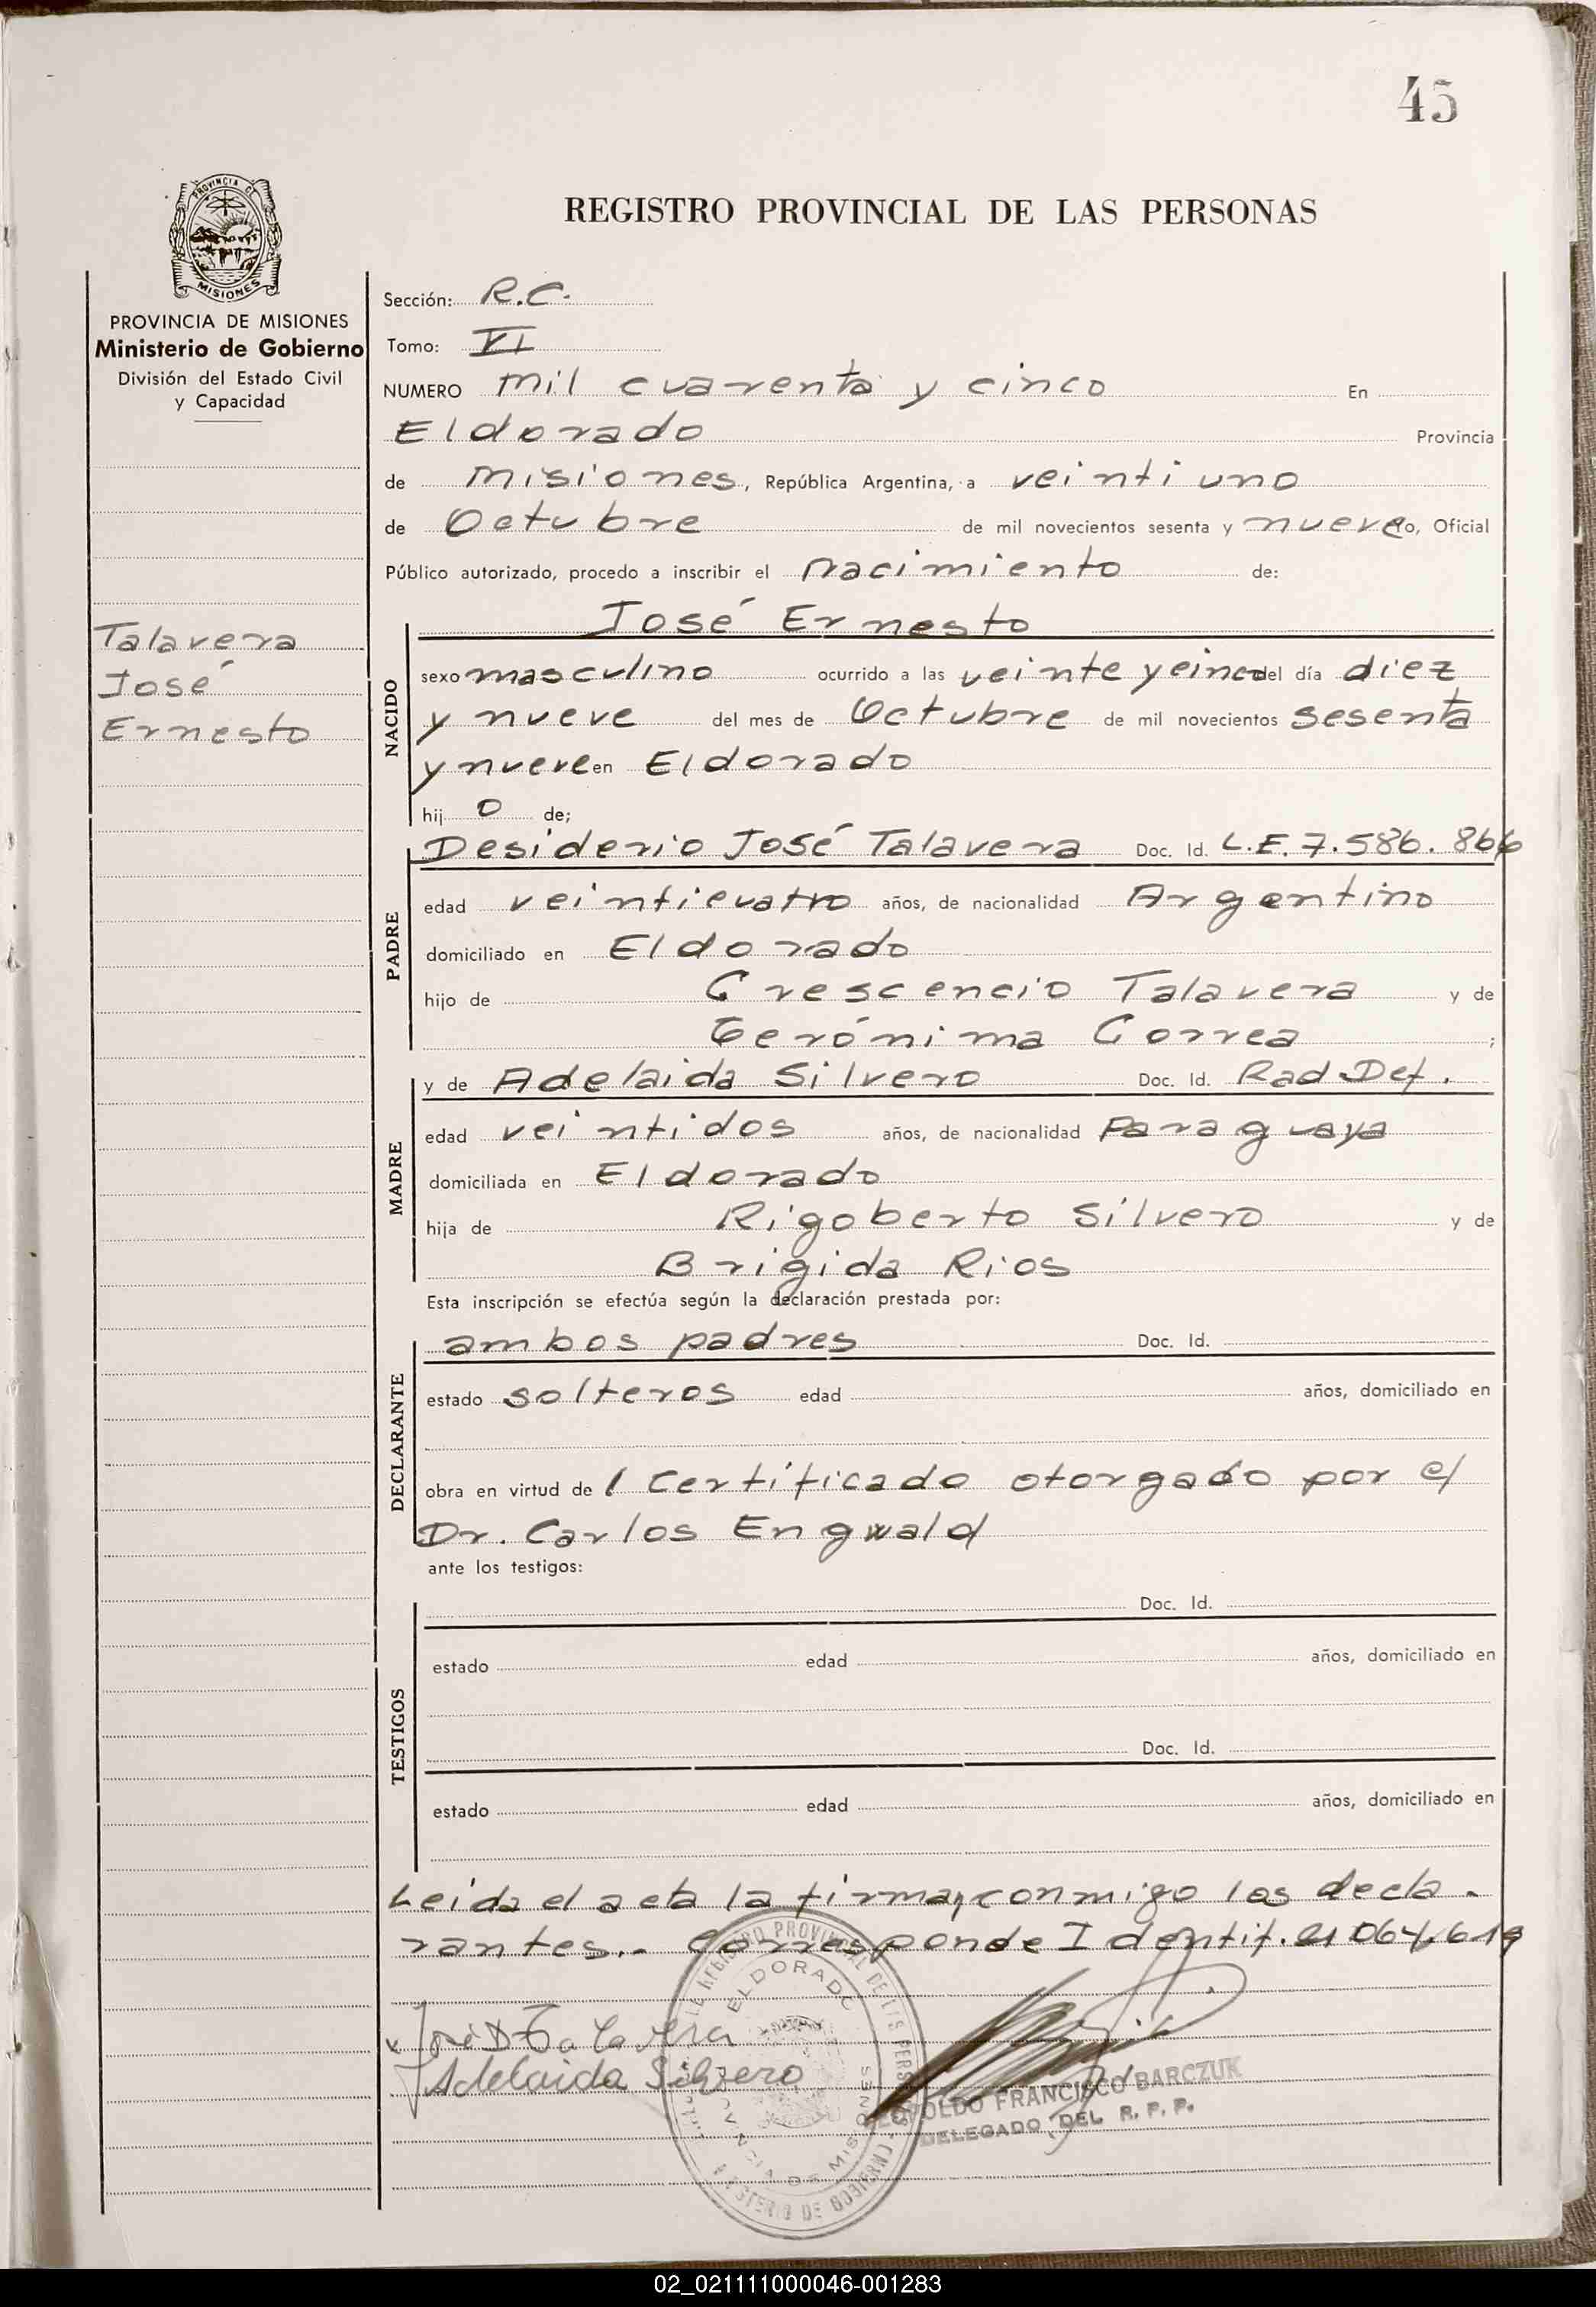 45
PROVINCIA DE
MISIONES
REGISTRO PROVINCIAL DE LAS PERSONAS
PROVINCIA DE MISIONES
Ministerio de Gobierno
División del Estado Civil
y Capacidad
Talavera
José
Ernesto
Sección: R.C.
Tomo: VI
NUMERO mil cuarenta y cinco En
Eldorado Provincia
de Misiones, República Argentina, a veintiuno
de Octubre de mil novecientos sesenta y nueve yo, Oficial
Público autorizado, procedo a inscribir el nacimiento de:
José Ernesto
NACIDO
sexo masculino ocurrido a las veinte y cinco del día diez
y nueve del mes de Octubre de mil novecientos sesenta
y nueve en Eldorado
hij o de;
PADRE
Desiderio José Talavera Doc. Id. L.E. 7.586.866
edad veinticuatro años, de nacionalidad Argentino
domiciliado en Eldorado
hijo de Crescencio Talavera y de
Gerónima Correa ;
MADRE
y de Adelaida Silvero Doc. Id. Rad Def.
edad veintidos años, de nacionalidad Paraguaya
domiciliada en Eldorado
hija de Rigoberto Silvero y de
Brigida Rios
Esta inscripción se efectúa según la declaración prestada por:
DECLARANTE
ambos padres Doc. Id.
estado solteros edad años, domiciliado en
obra en virtud de l Certificado otorgado por el
Dr. Carlos Engwald
ante los testigos:
TESTIGOS
Doc. Id.
estado edad años, domiciliado en
Doc. Id.
estado edad años, domiciliado en
Leida el acta la firman conmigo los decla-
rantes.- Corresponde Identif. 21 064.619
José D Talavera
Adelaida Silvero
REGISTRO PROVINCIAL DE LAS PERSONAS
ELDORADO
PROVINCIA DE MISIONES
MINISTERIO DE GOBIERNO
LEOPOLDO FRANCISCO BARCZUK
DELEGADO DEL R. P. P.
02_021111000046-001283